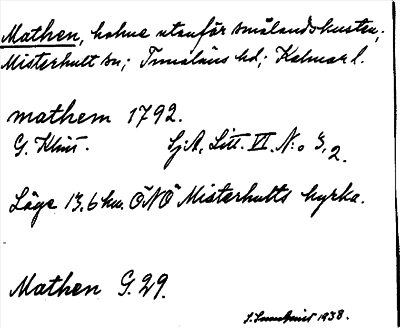 Mathen, holme utanför smålandskusten,
Misterhult sn; Tunaläns hd; Kalmar l.
mathem 1792.
G. Klint. SjA, Litt. VI. N:o 3,2.
Läge 13,6 km. ÖNÖ Misterhults kyrka.
Mathen G. 29.
1938.